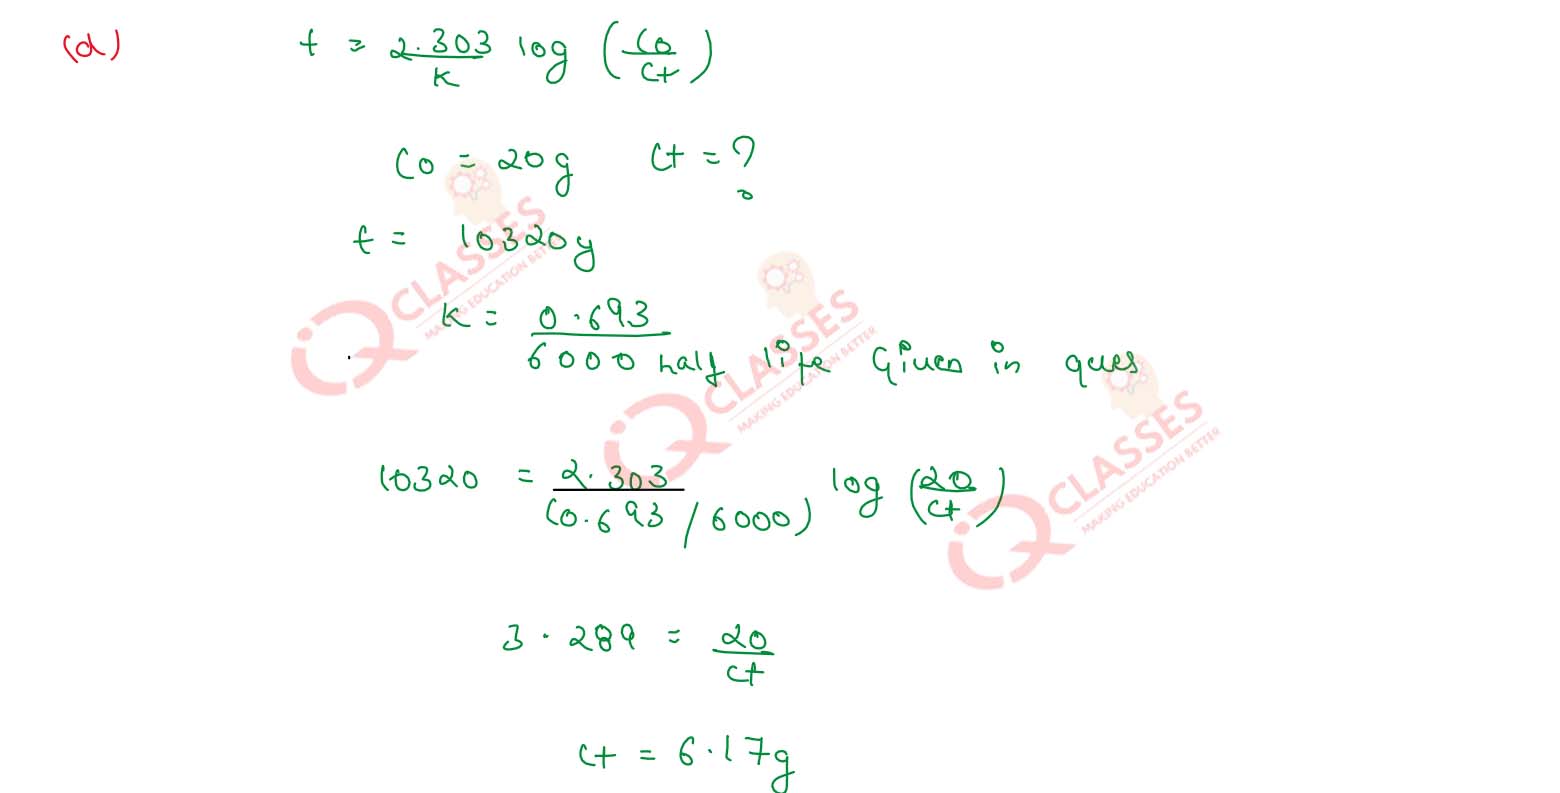 (d) t = 2.303/K log (Co/Ct)
Co = 20g Ct = ?
t = 10320y
K = 0.693/6000 half life Given in ques
10320 = 2.303/(0.693/6000) log (20/Ct)
3.289 = 20/Ct
Ct = 6.17g
iQ CLASSES
MAKING EDUCATION BETTER
iQ CLASSES
MAKING EDUCATION BETTER
iQ CLASSES
MAKING EDUCATION BETTER